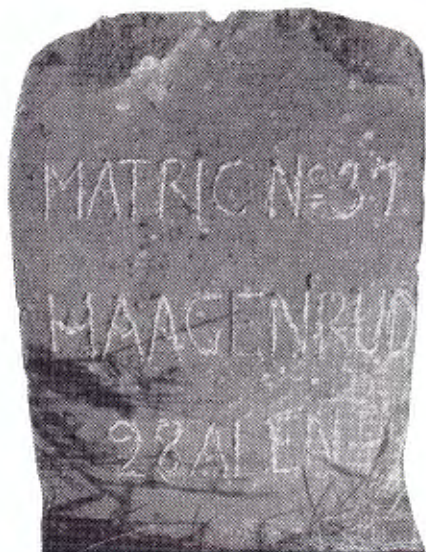 MATRIC Nº 37
HAAGENRUD
28 ALEN